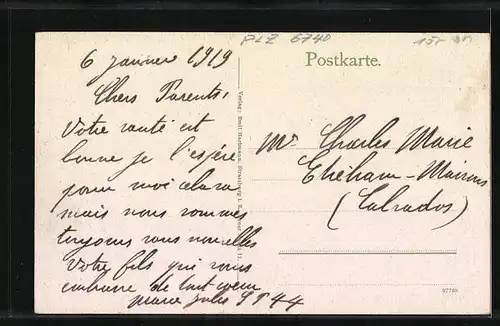 PLZ 6740
6 janvier 1919
Postkarte.
Chers Parents,
Votre santé est
bonne je l'espère
pour moi cela va
mais nous sommes
toujours sans nouvelles
Votre fils qui vous
embrasse de tout coeur
Marie Jules 9144
Mr Charles Marie
Etréham-Maisons
(Calvados)
Verlag: Emil Hartmann, Strassburg i. E.
37789